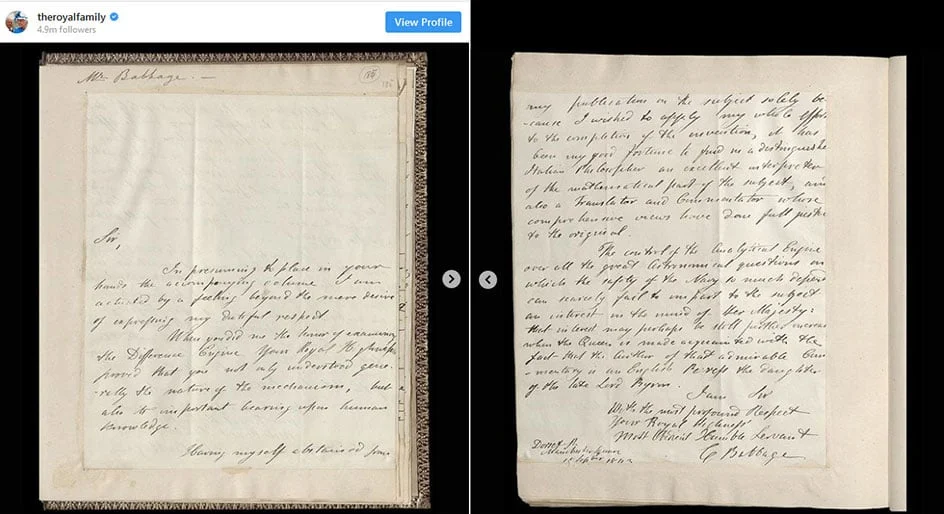 theroyalfamily
4.9m followers
View Profile
Mr. Babbage. —
186
Sir,
In presuming to place in your
hands the accompanying volume I am
actuated by a feeling beyond the mere desire
of expressing my dutiful respect
When you did me the honor of examining
the Difference Engine Your Royal Highness
proved that you not only understood gene-
-rally the nature of the mechanism, but
also its important bearing upon human
knowledge.
Having myself abstained from
any publication on the subject solely be-
-cause I wished to apply my whole efforts
to the completion of the invention, it has
been my good fortune to find in a distinguished
Italian Philosopher an excellent interpreter
of the mathematical part of the subject, and
also a Translator and Commentator whose
comprehensive views have done full justice
to the original.
The control of the Analytical Engine
over all the great Astronomical questions on
which the safety of the Navy so much depends
can scarcely fail to impart to the subject
an interest in the mind of Her Majesty:
that interest may perhaps be still further increased
when the Queen is made acquainted with the
fact that the Author of that admirable Com-
-mentary is an English Peeress the daughter
of the late Lord Byron.
I am Sir
With the most profound Respect
Your Royal Highness'
Most Obedient Humble Servant
C Babbage
Dorset St
Manchester Square
Sep 1843